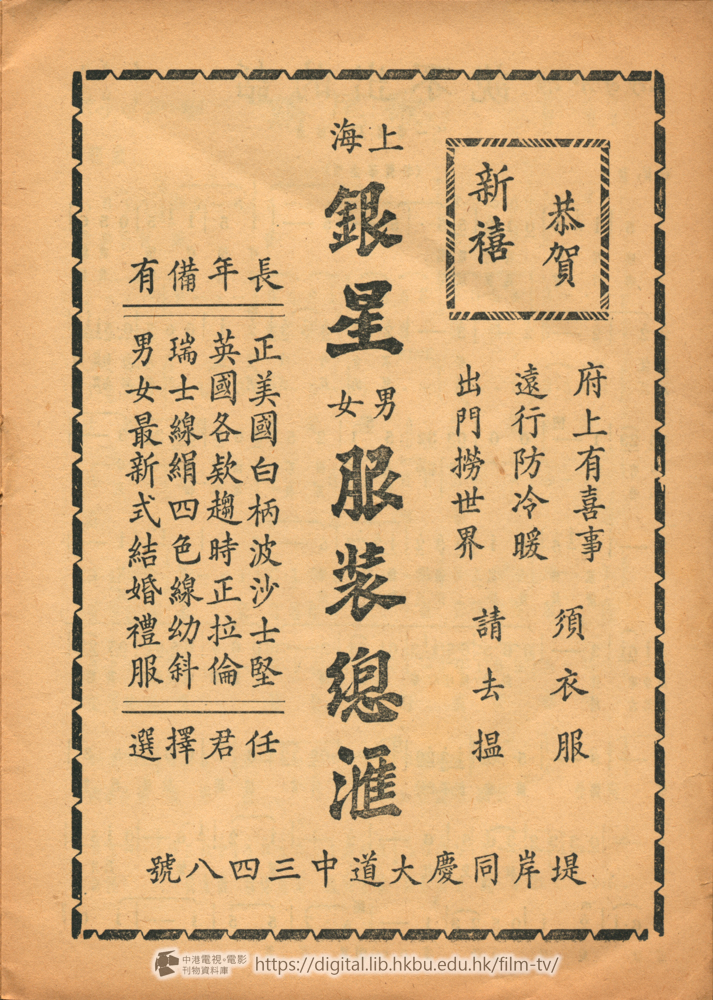 恭賀
新禧
府上有喜事
遠行防冷暖
出門撈世界
須衣服
請去揾
上海
銀星
男女
服装總滙
長年備有
正美國白柄波沙士堅
英國各欵趨時正拉倫
瑞士線絹四色線幼斜
男女最新式結婚禮服
任君擇選
堤岸同慶大道中三四八號
中港電視•電影
刊物資料庫
https://digital.lib.hkbu.edu.hk/film-tv/